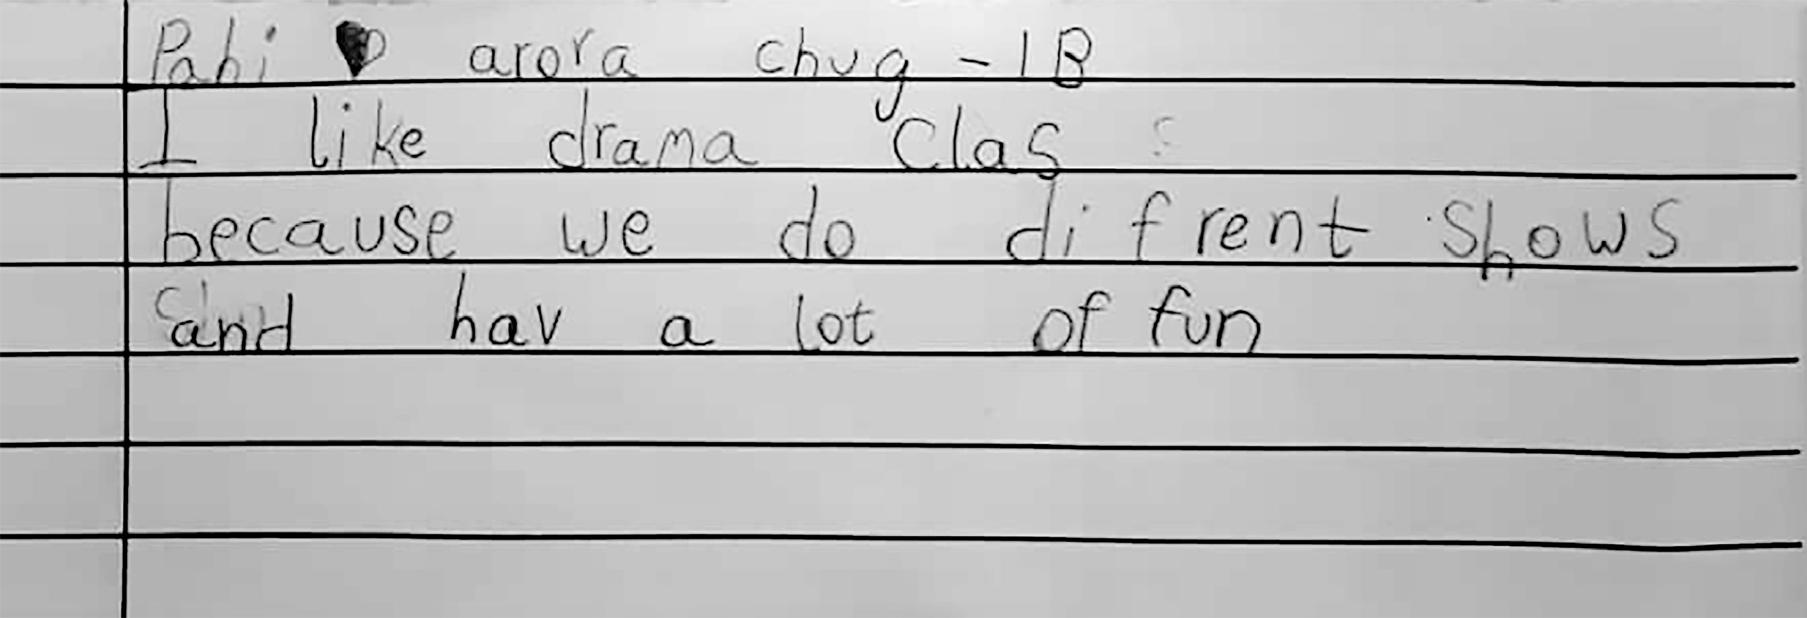 Pahi arora chug - 1B
I like drama Clas
because we do difrent shows
and hav a lot of fun